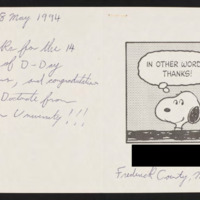 8 May 1994
for the 14
of D-Day
and congratulations
Doctorate from
University!!!
IN OTHER WORDS
THANKS!
Frederick County,